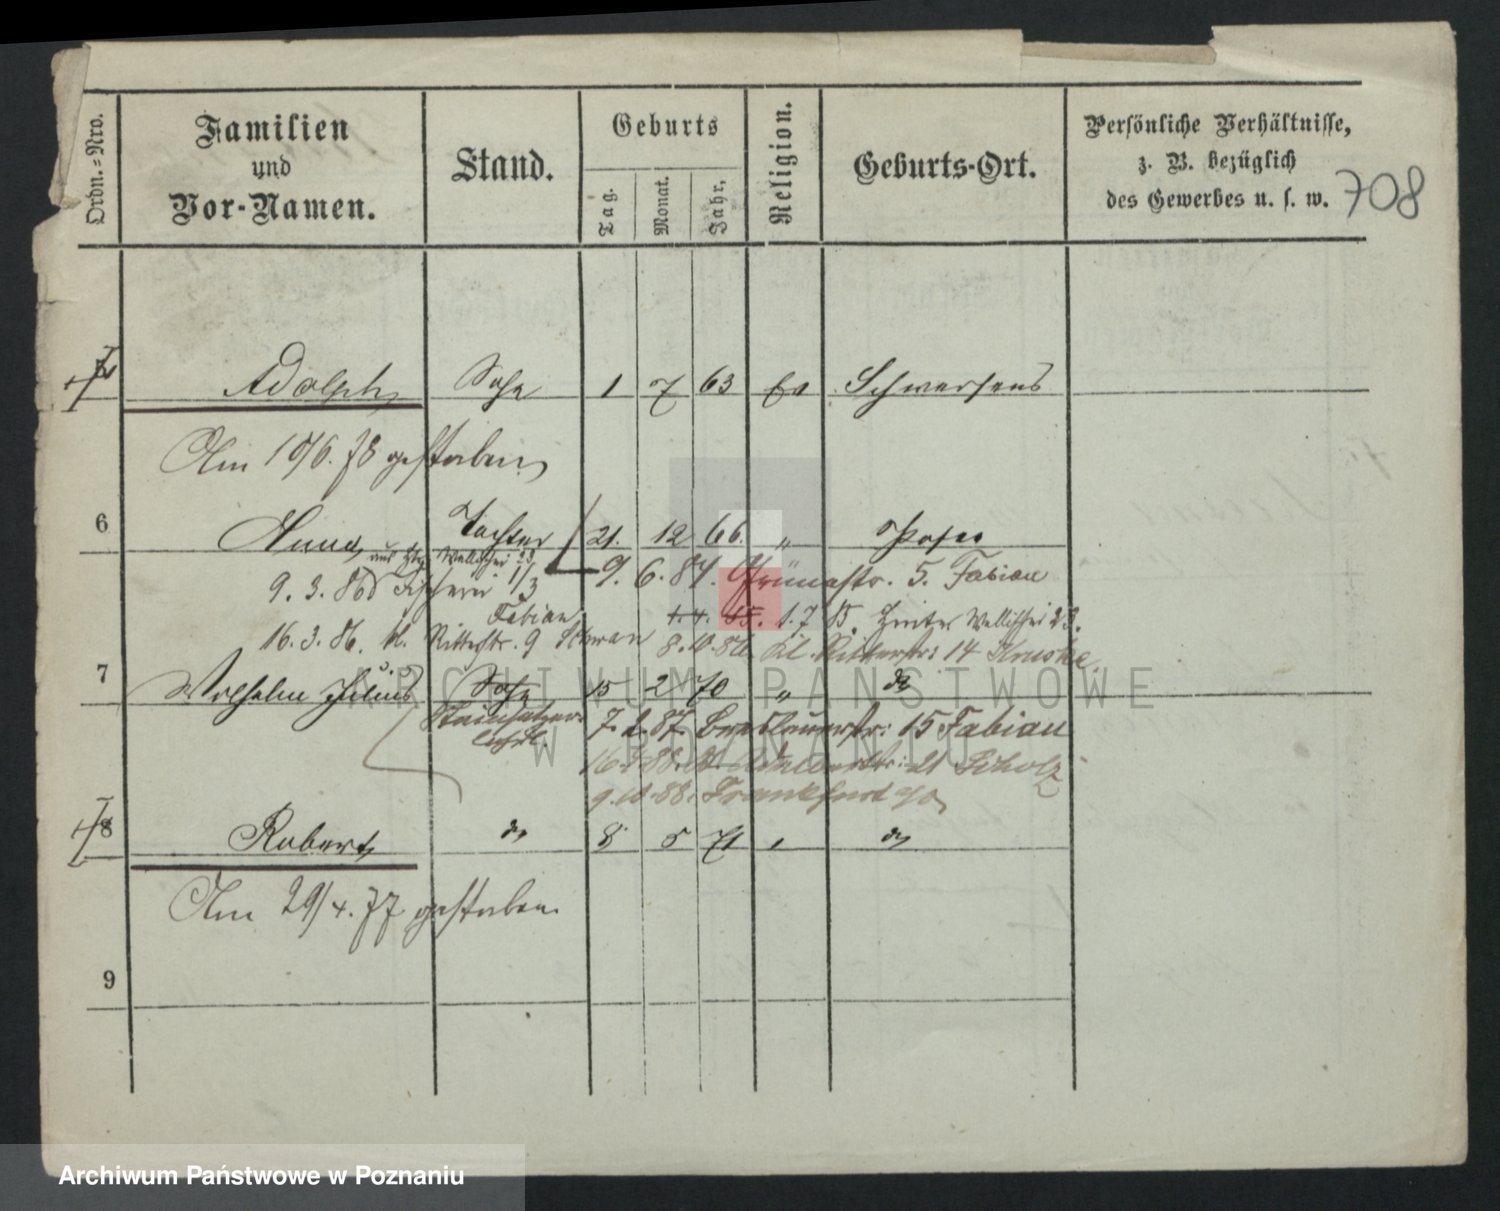 Ordn.-Nro.
Familien
und
Vor-Namen.
Stand.
Geburts
Tag.
Monat.
Jahr,
Religion.
Geburts-Ort.
Persönliche Verhältnisse,
z. B. bezüglich
des Gewerbes u. s. w.
708
Adolph Sohn 1 7 63 Ev Schwersens
Am 10/6. 78 gestorben
6 Anna Tochter 21. 12 66. „ Posen
9. 6. 84. Grünestr. 5. Fabian
9. 3. 86 Fischerei 1/3
Fabian
1. 4. 85. 1. 7 85. Hinter Wallischei 23.
16. 3. 86. kl. Ritterstr. 9
8. 10. 86 Kl. Ritterstr: 14 Kruske
7 Wilhelm Julius Sohn 15 2 70 „ do
Steinsetzer
7. 2. 87. Breslauerstr: 15 Fabian
21 Scholz
9. 10. 88. Frankfurt a/O
8 Robert do 8 5 71 „ do
Am 29/4. 77 gestorben
9
ARCHIWUM PAŃSTWOWE
W POZNANIU
Archiwum Państwowe w Poznaniu